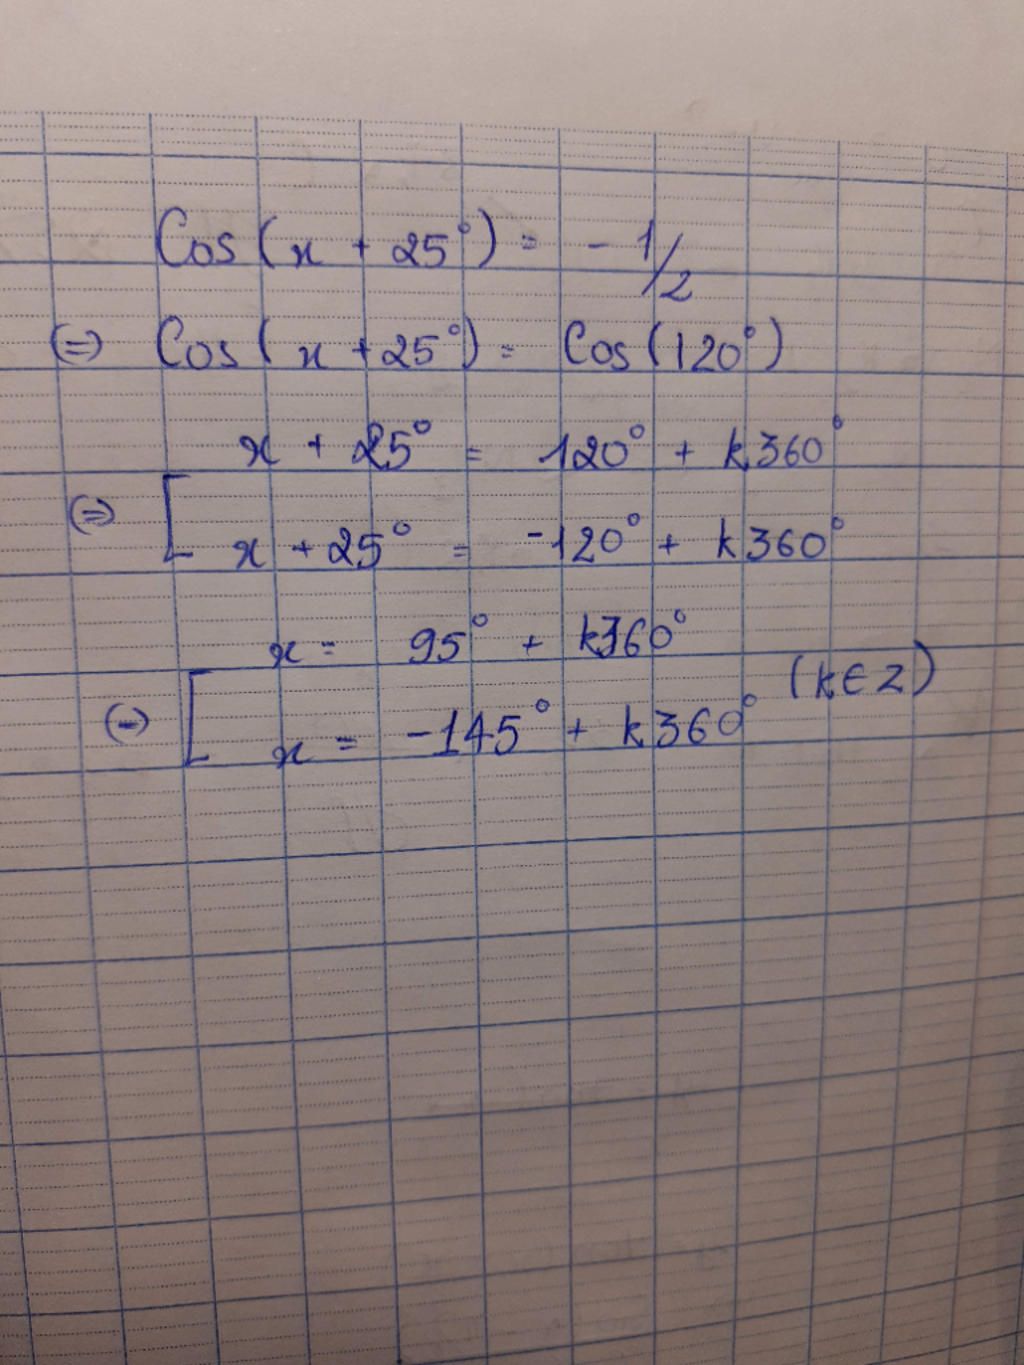 Cos(x + 25°) = - 1/2
(=) Cos(x + 25°) = Cos(120°)
x + 25° = 120° + k360°
(=) [
x + 25° = -120° + k360°
x = 95° + k360°
(=) [ (k∈Z)
x = -145° + k360°